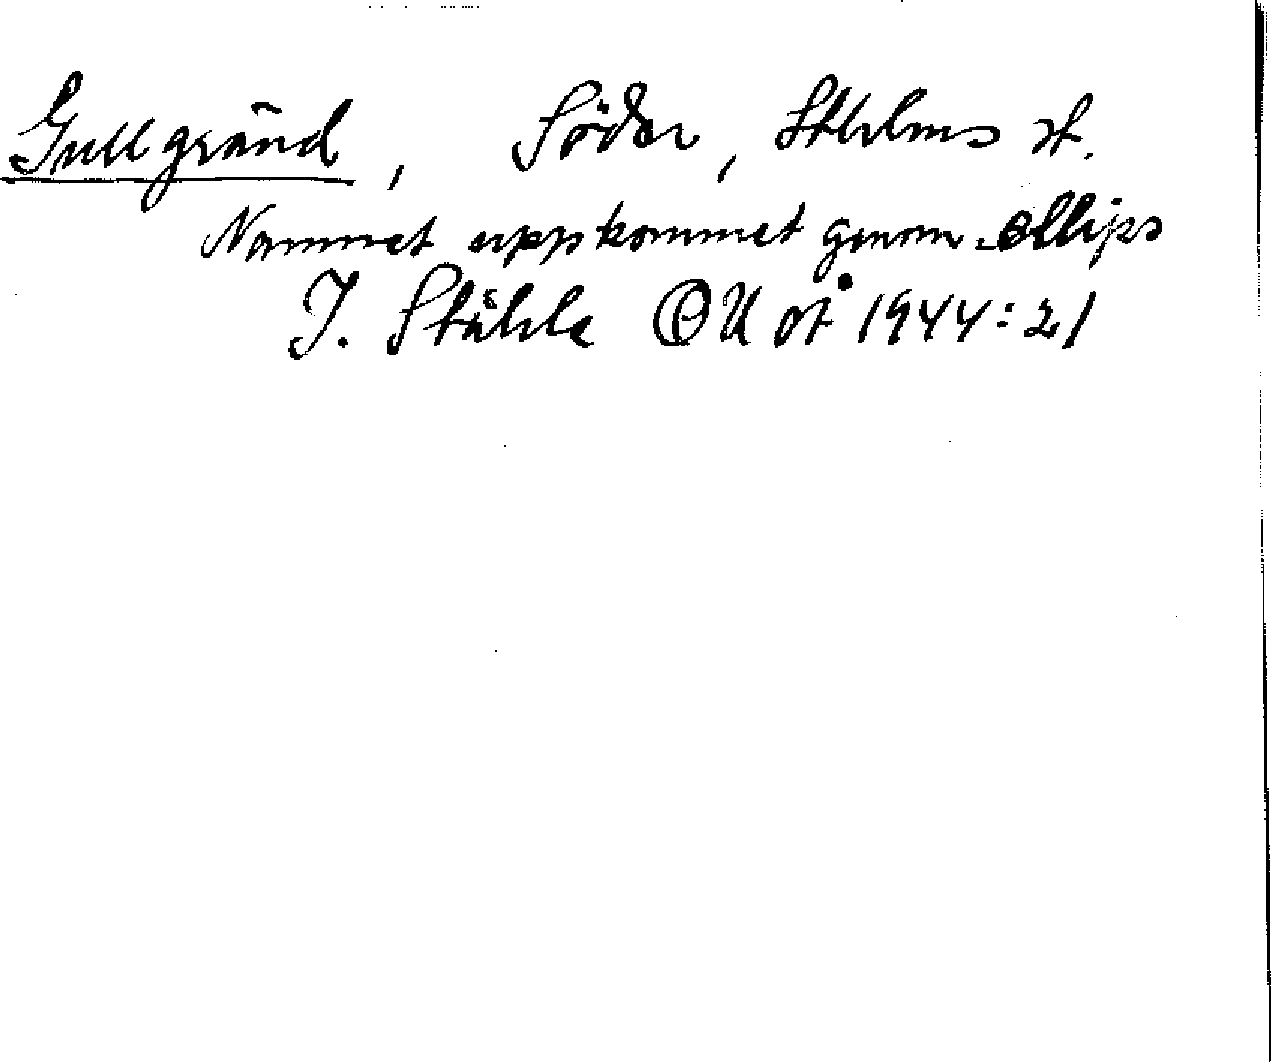 Gullgränd, Söder, Sthlms st.
Namnet uppkommet genom ellips
I. Ståhle OU åt 1944:21